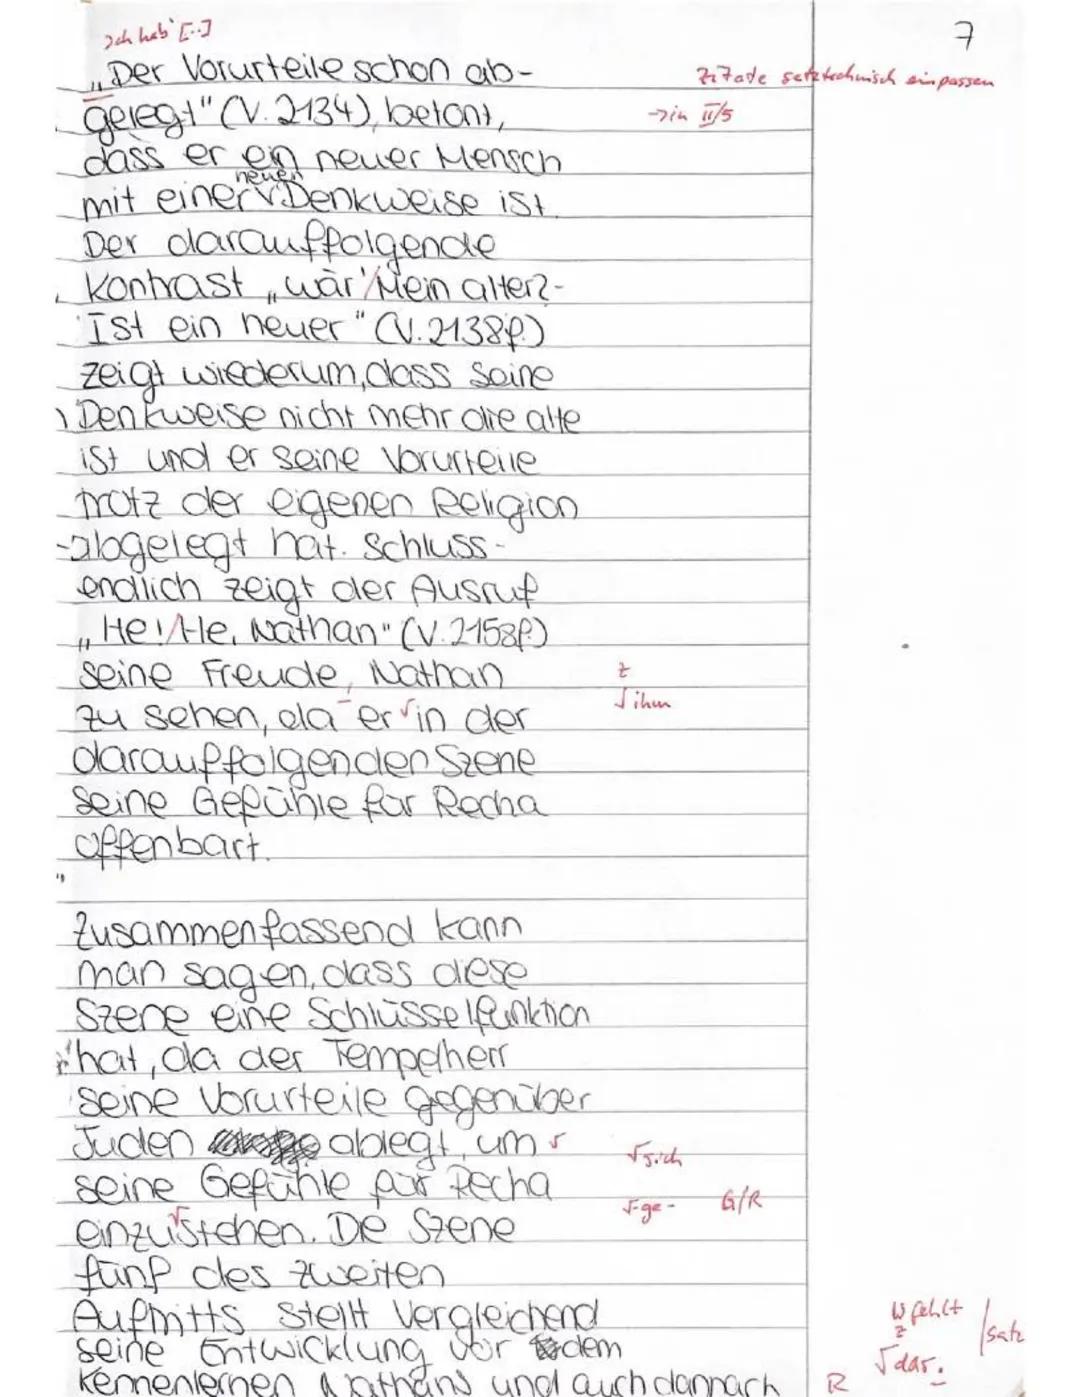 Ich hab' [..]
7
„Der Vorurteile schon ab-
Zitate satztechnisch einpassen
gelegt" (V. 2134), betont,
→in II/5
dass er ein neuer Mensch
neuen
mit einer √ Denkweise ist.
Der darauffolgende
Kontrast „wär'/Mein alter?-
Ist ein neuer" (V. 2138f.)
zeigt wiederum, dass seine
Denkweise nicht mehr die alte
ist und er seine Vorurteile
trotz der eigenen Religion
abgelegt hat. Schluss-
endlich zeigt der Ausruf
„He!/He, Nathan" (V. 2158f.)
seine Freude, Nathan
z
√ ihm
zu sehen, da er √ in der
darauffolgenden Szene
seine Gefühle für Recha
offenbart.
Zusammenfassend kann
man sagen, dass diese
Szene eine Schlüsselfunktion
hat, da der Tempelherr
seine Vorurteile gegenüber
Juden ablegt, um √
√ sich
seine Gefühle für Recha
√-ge- G/R
einzu√stehen. De Szene
fünf des zweiten
Auftritts stellt vergleichend
W fehlt
z
/Satz
seine Entwicklung vor dem
√ dar.
kennenlernen Nathans und auch dannach
R